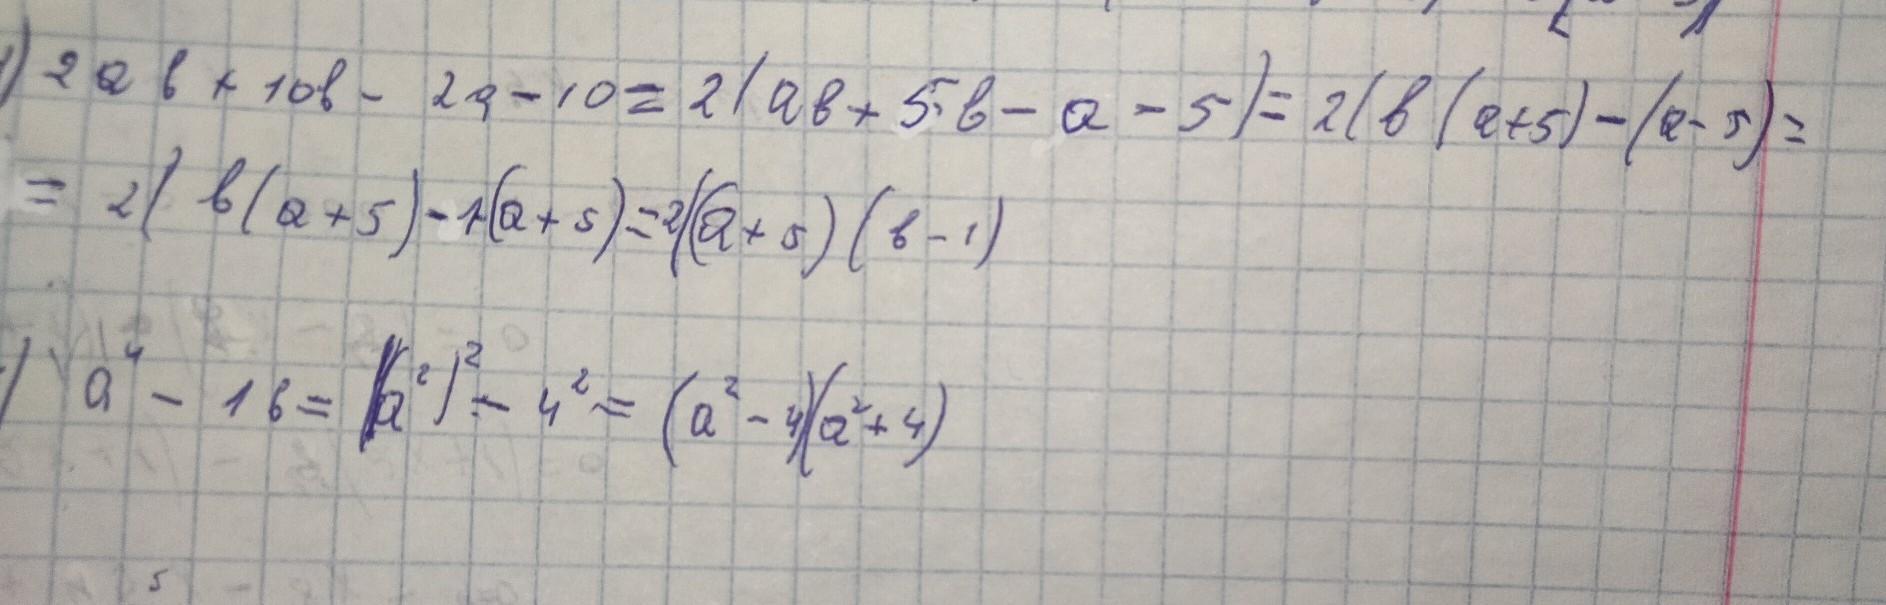 ) 2ab + 10b - 2a - 10 = 2(ab + 5b - a - 5) = 2(b(a+5) - (a - 5) =
= 2(b(a + 5) - 1(a + 5) = 2((a + 5)(b - 1)
) a⁴ - 16 = (a²)² - 4² = (a² - 4)(a² + 4)
5